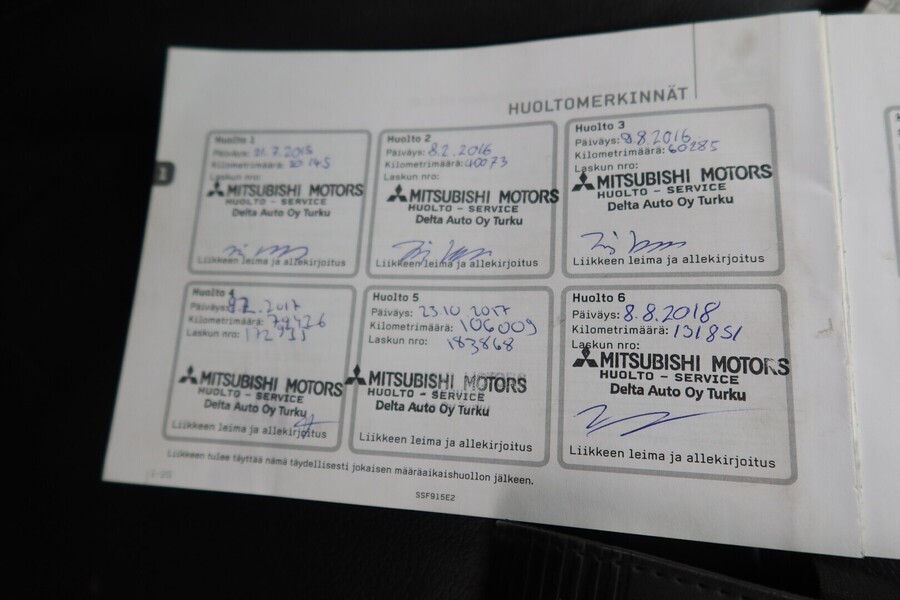 HUOLTOMERKINNÄT
Huolto 1
Päiväys: 21.7.2015
Kilometrimäärä: 20145
Laskun nro:
MITSUBISHI MOTORS
HUOLTO - SERVICE
Delta Auto Oy Turku
Liikkeen leima ja allekirjoitus
Huolto 2
Päiväys: 8.2.2016
Kilometrimäärä: 40073
Laskun nro:
MITSUBISHI MOTORS
HUOLTO - SERVICE
Delta Auto Oy Turku
Liikkeen leima ja allekirjoitus
Huolto 3
Päiväys: 8.8.2016
Kilometrimäärä: 60285
Laskun nro:
MITSUBISHI MOTORS
HUOLTO - SERVICE
Delta Auto Oy Turku
Liikkeen leima ja allekirjoitus
Huolto 4
Päiväys: 8.2.2017
Kilometrimäärä: 79426
Laskun nro:
MITSUBISHI MOTORS
HUOLTO - SERVICE
Delta Auto Oy Turku
Liikkeen leima ja allekirjoitus
Huolto 5
Päiväys: 23.10.2017
Kilometrimäärä: 106009
Laskun nro: 183868
MITSUBISHI MOTORS
HUOLTO - SERVICE
Delta Auto Oy Turku
Liikkeen leima ja allekirjoitus
Huolto 6
Päiväys: 8.8.2018
Kilometrimäärä: 131851
Laskun nro:
MITSUBISHI MOTORS
HUOLTO - SERVICE
Delta Auto Oy Turku
Liikkeen leima ja allekirjoitus
Liikkeen tulee täyttää nämä täydellisesti jokaisen määräaikaishuollon jälkeen.
SSF915E2